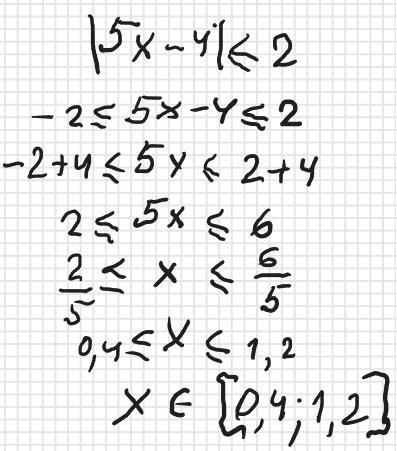 |5x-4|≤2
-2≤5x-4≤2
-2+4≤5x≤2+4
2≤5x≤6
2/5≤x≤6/5
0,4≤x≤1,2
x∈[0,4;1,2]